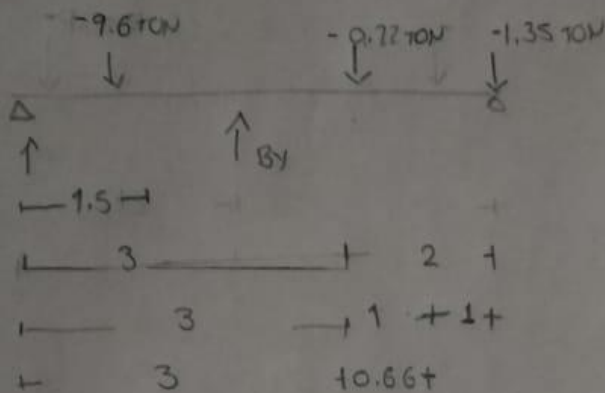 -9.6 TON -0.22 TON -1.35 TON
By
1.5
3 2
3 1 1
3 0.66